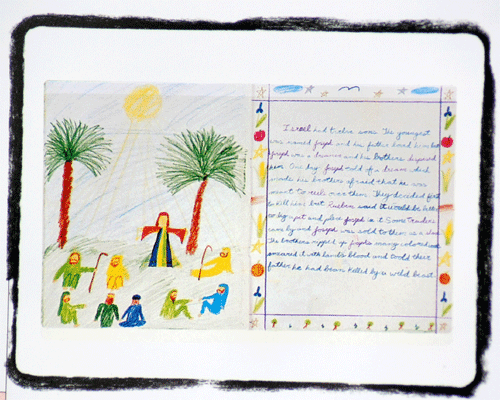 Israel had twelve sons. The youngest
was named Josef and his father loved him but
Josef was a dreamer and his brothers despised
him. One day Josef told of a dream which
made his brothers afraid that he was
meant to rule over them. They decided first
to kill him but Reuben said it would be better
to dig a pit and place Josef in it. Some Traders
came by and Josef was sold to them as a slave
The brothers ripped up Josefs many colored coat
smeared it with lamb's blood and told their
father he had been killed by a wild beast.